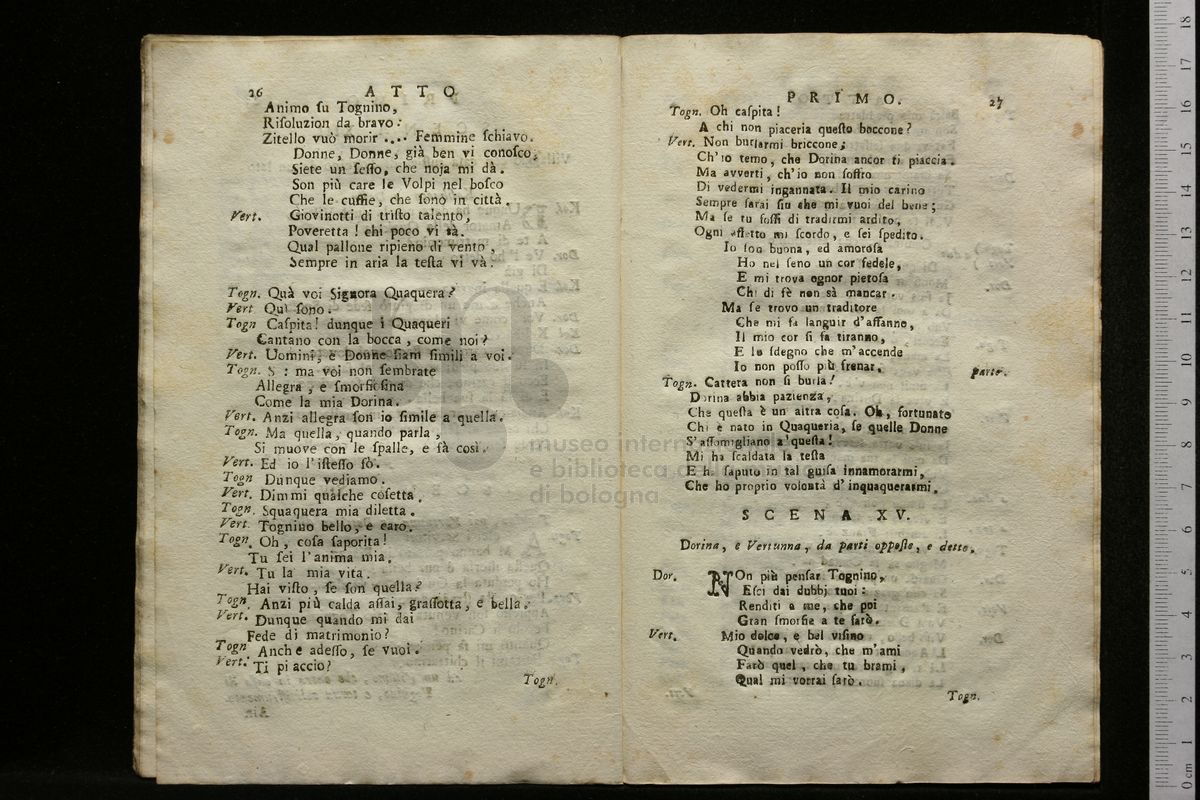 26 ATTO
Animo ſu Tognino,
Riſoluzion da bravo:
Zitello vuò morir .... Femmine ſchiavo.
Donne, Donne, già ben vi conoſco,
Siete un ſeſſo, che noja mi dà.
Son più care le Volpi nel boſco
Che le cuffie, che ſono in città.
Vert. Giovinotti di triſto talento,
Poveretta! chi poco vi sà.
Qual pallone ripieno di vento,
Sempre in aria la teſta vi và.
Togn. Quà voi Signora Quaquera?
Vert Qui ſono.
Togn Caſpita! dunque i Quaqueri
Cantano con la bocca, come noi?
Vert. Uomini, e Donne ſiam ſimili a voi.
Togn. S : ma voi non ſembrate
Allegra, e ſmorfioſina
Come la mia Dorina.
Vert. Anzi allegra ſon io ſimile a quella.
Togn. Ma quella, quando parla,
Si muove con le ſpalle, e fà così.
Vert. Ed io l'iſteſſo fò.
Togn Dunque vediamo.
Vert. Dimmi qualche coſetta.
Togn. Squaquera mia diletta.
Vert. Tognino bello, e caro.
Togn. Oh, coſa ſaporita!
Tu ſei l'anima mia.
Vert. Tu la mia vita.
Hai viſto, ſe ſon quella?
Togn. Anzi più calda aſſai, graſſotta, e bella.
Vert. Dunque quando mi dai
Fede di matrimonio?
Togn Anche adeſſo, ſe vuoi.
Vert. Ti piaccio?
Togn.
PRIMO. 27
Togn. Oh caſpita!
A chi non piaceria queſto boccone?
Vert. Non burlarmi briccone;
Ch'io temo, che Dorina ancor ti piaccia.
Ma avverti, ch'io non ſoffro
Di vedermi ingannata. Il mio carino
Sempre ſarai fin che mi vuoi del bene;
Ma ſe tu foſſi di tradirmi ardito,
Ogni affetto mi ſcordo, e ſei ſpedito.
Io ſon buona, ed amoroſa
Ho nel ſeno un cor fedele,
E mi trova ognor pietoſa
Chi di fè non sà mancar.
Ma ſe trovo un traditore
Che mi fa languir d'affanno,
Il mio cor ſi fa tiranno,
E lo ſdegno che m'accende
Io non poſſo più frenar.
parte.
Togn. Cattera non ſi burla!
Dorina abbia pazienza,
Che queſta è un altra coſa. Oh, fortunato
Chi è nato in Quaqueria, ſe quelle Donne
S'aſſomigliano a queſta!
Mi ha ſcaldata la teſta
E ha ſaputo in tal guiſa innamorarmi,
Che ho proprio volontà d'inquaquerarmi.
SCENA XV.
Dorina, e Vertunna, da parti oppoſte, e detto.
Dor. NOn più penſar Tognino,
Eſci dai dubbj tuoi:
Renditi a me, che poi
Gran ſmorfie a te farò.
Vert. Mio dolce, e bel viſino
Quando vedrò, che m'ami
Farò quel, che tu brami,
Qual mi vorrai ſarò.
Togn.
museo
e biblioteca
di bologna
0 cm 1 2 3 4 5 6 7 8 9 10 11 12 13 14 15 16 17 18